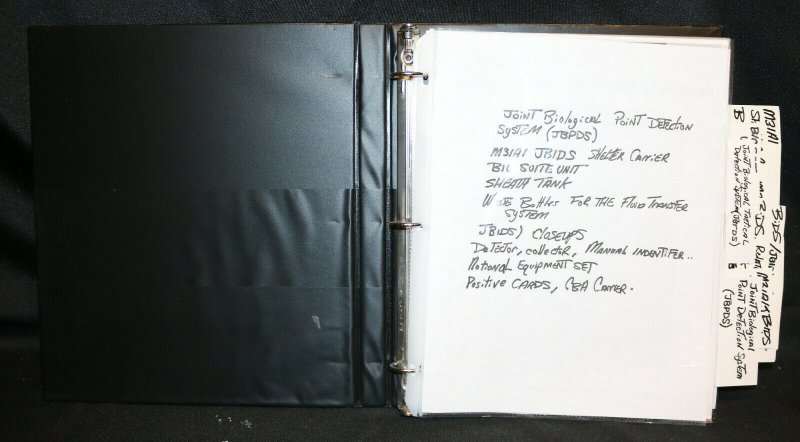 Joint Biological Point Detection
System (JBPDS)
M31A1 JBIDS Shelter Carrier
Bio Suite Unit
Sheath Tank
Waste Bottles For The Fluid Transfer
System
JBIDS) Closeups
Detector, collector, Manual Indentifer..
Notional Equipment Set
Positive Cards, CBA Carrier.
M31A1
B (Joint Biological Tactical
Detection System (JBTDS)
BIDS
M31A1 BIDS -
Joint Biological
Point Detection System
(JBPDS)